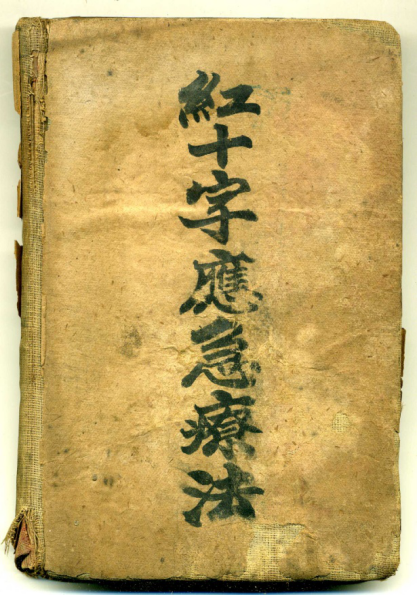 紅十字應急療法